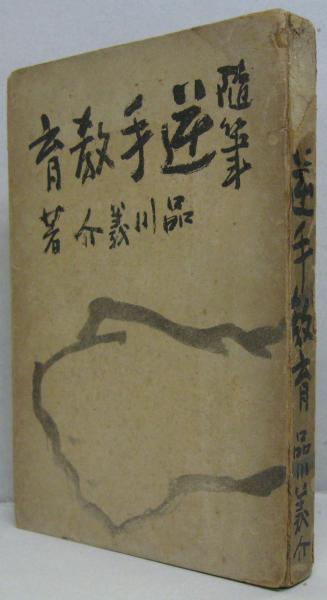 随筆
逆手教育
品川義介著
逆手教育 品川義介